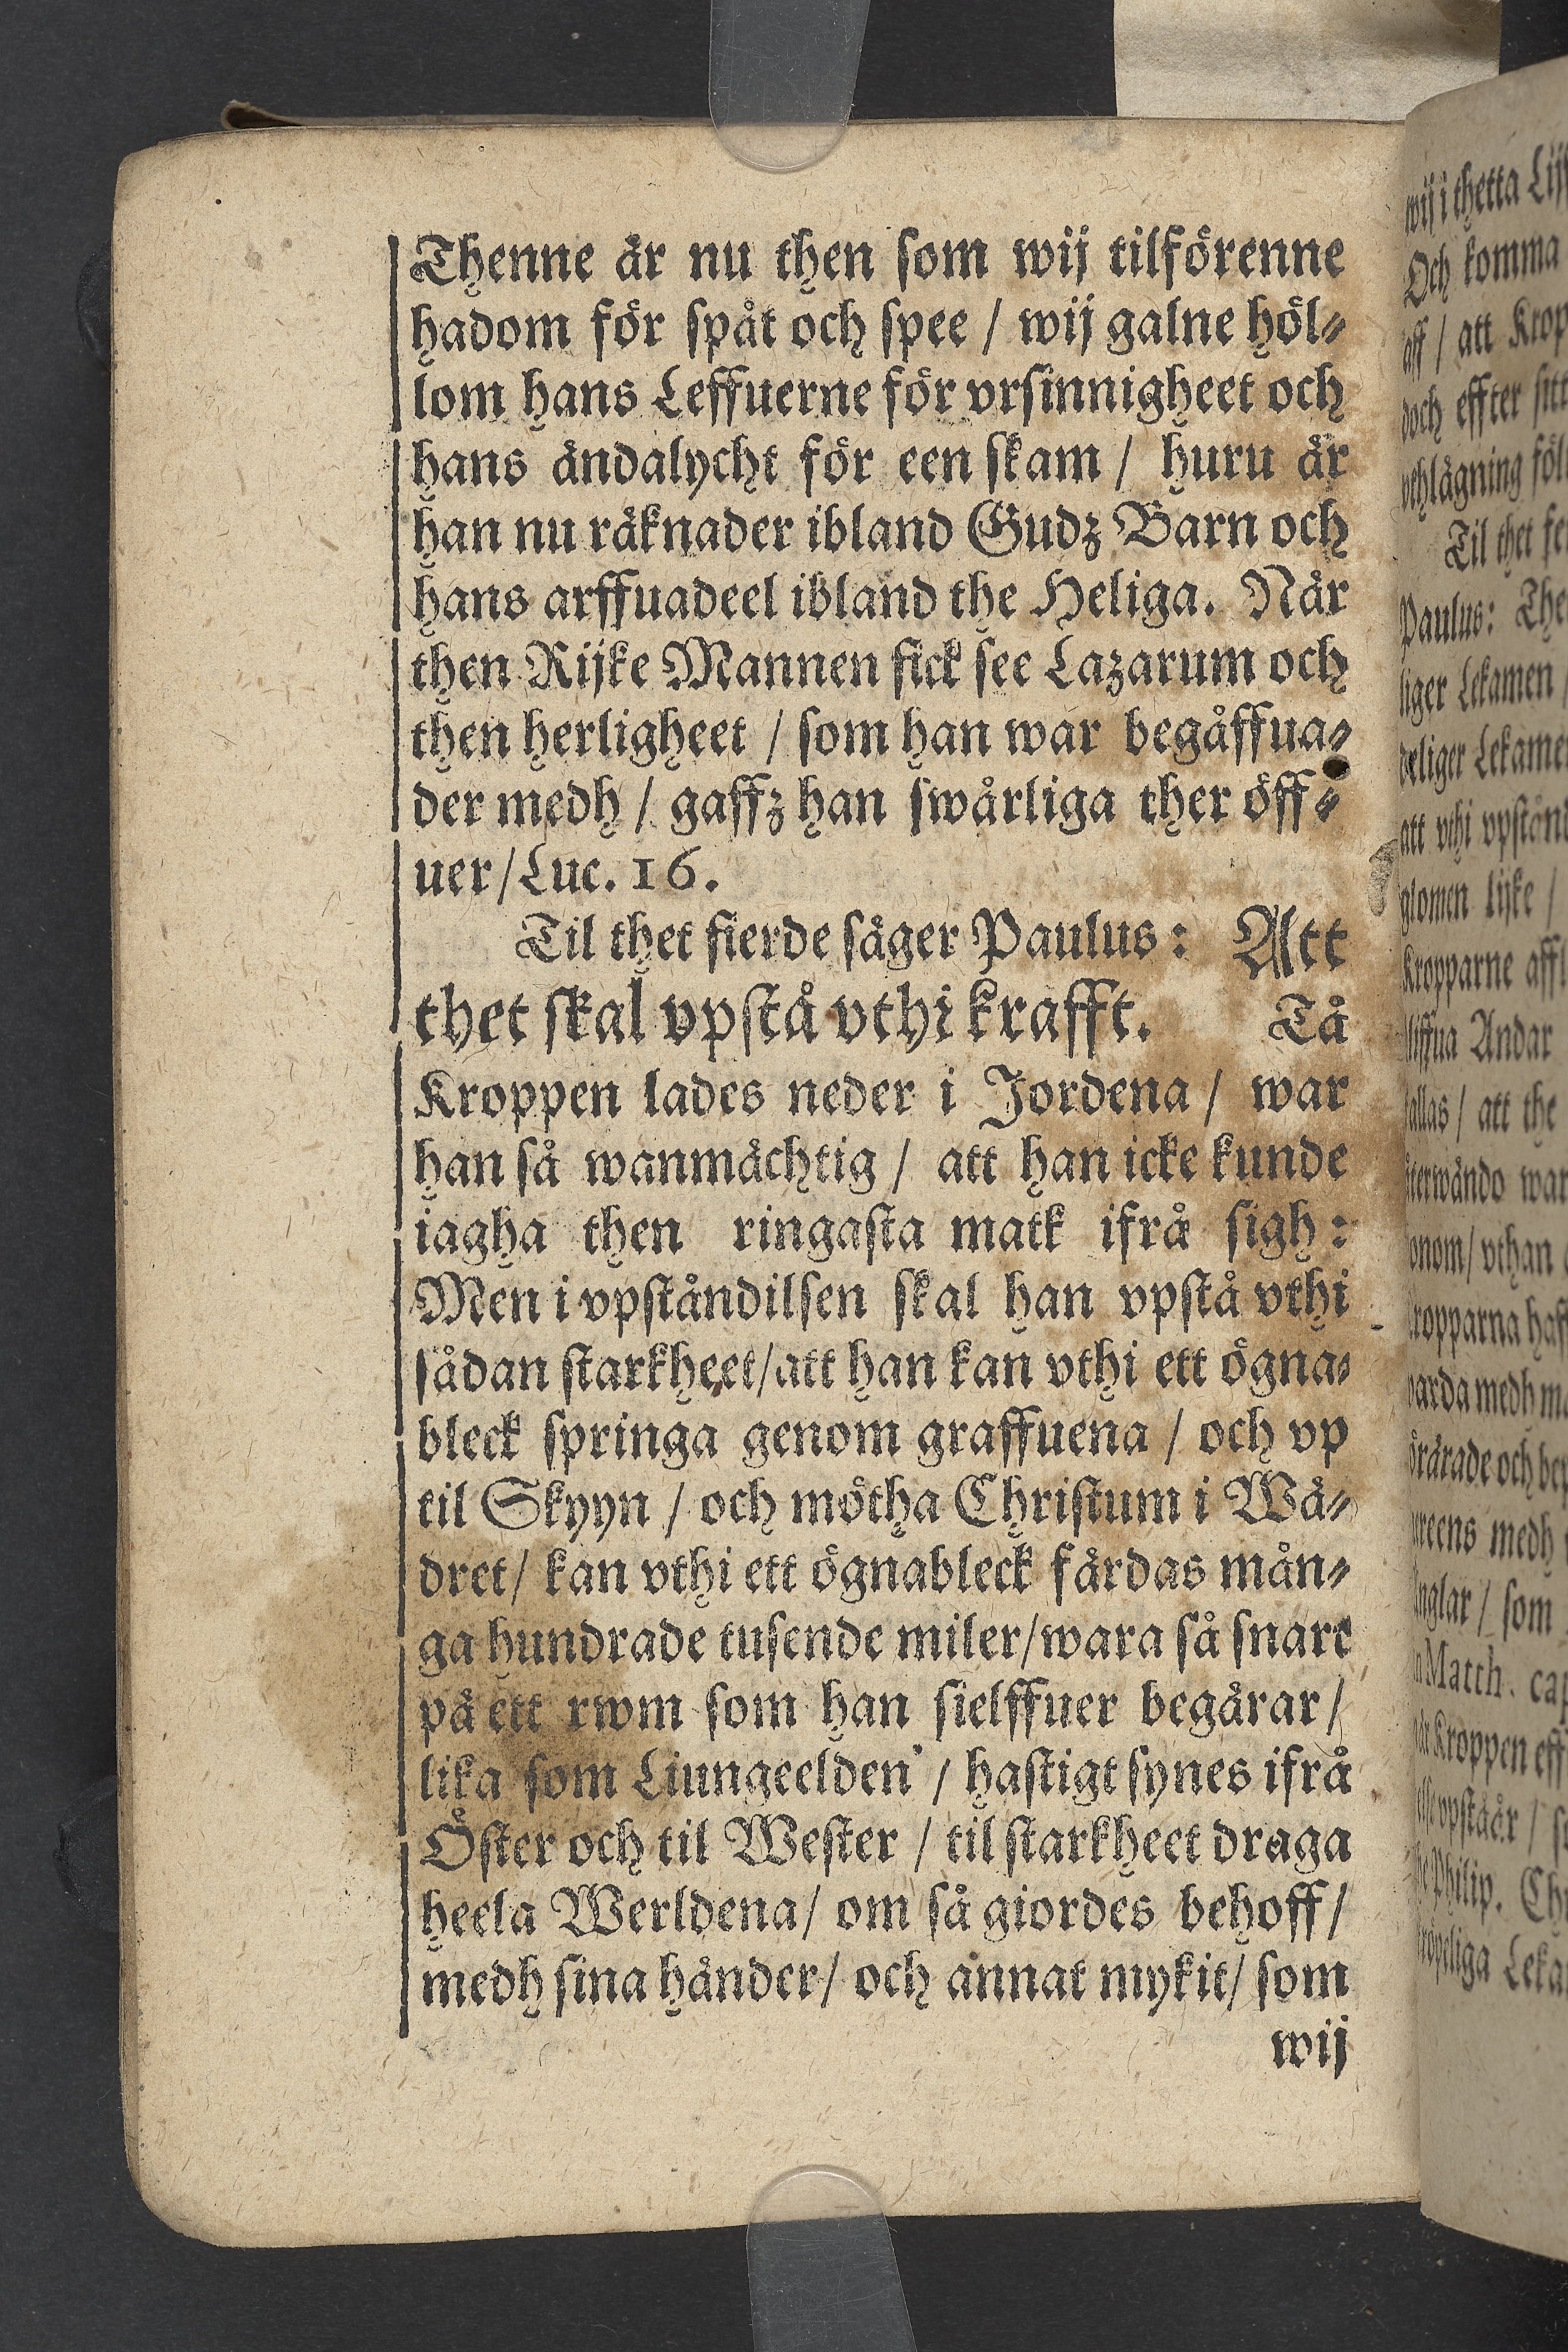 Thenne är nu then som wij tilförenne
hadom för spåt och spee / wij galne höl⸗
lom hans Leffuerne för vrsinnigheet och
hans ändalycht för een skam / huru är
han nu räknader ibland Gudz Barn och
hans arffuadeel ibland the Heliga. När
then Rijke Mannen fick see Lazarum och
then herligheet / som han war begåffua⸗
der medh / gaffz han swårliga ther öff⸗
uer / Luc. 16.
Til thet fierde säger Paulus: Att
thet skal vpstå vthi krafft. Tå
Kroppen lades neder i Jordena / war
han så wanmächtig / att han icke kunde
iagha then ringasta matk ifrå sigh:
Men i vpståndilsen skal han vpstå vthi
sådan starkheet / att han kan vthi ett ögna⸗
bleck springa genom graffuena / och vp
til Skyyn / och mötha Christum i Wä⸗
dret / kan vthi ett ögnableck färdas mån⸗
ga hundrade tusende miler / wara så snart
på ett rwm som han sielffuer begärar /
lika som Liungeelden / hastigt synes ifrå
Öster och til Wester / til starkheet draga
heela Werldena / om så giordes behoff /
medh sina händer / och annat mykit / som
wij
wij i thetta
Och komma
aff / att
doch effter
Til thet
Paulus:
Lekamen
att vthi
lijke /
Kropparne
Andar
att the
vthan
medh
och
medh
/ som
Matth.
Kroppen
Philip.